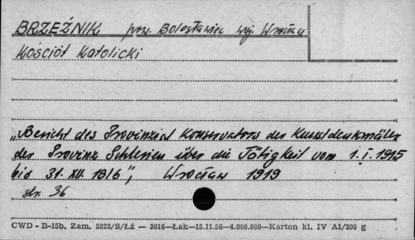 BRZEŹNIK pow. Bolesławiec woj. Wrocław
Kościół Katolicki
„Bericht des Provinzial Konservators der Kunstdenkmäler
der Provinz Schlesien über die Tätigkeit vom 1.I.1915
bis 31.XII.1916", Wrocław 1919
str. 36
CWD - B-15b, Zam. 5823/S/Łź — 3016—Łak—15.11.56—4.000.000—Karton kl. IV A1/200 g